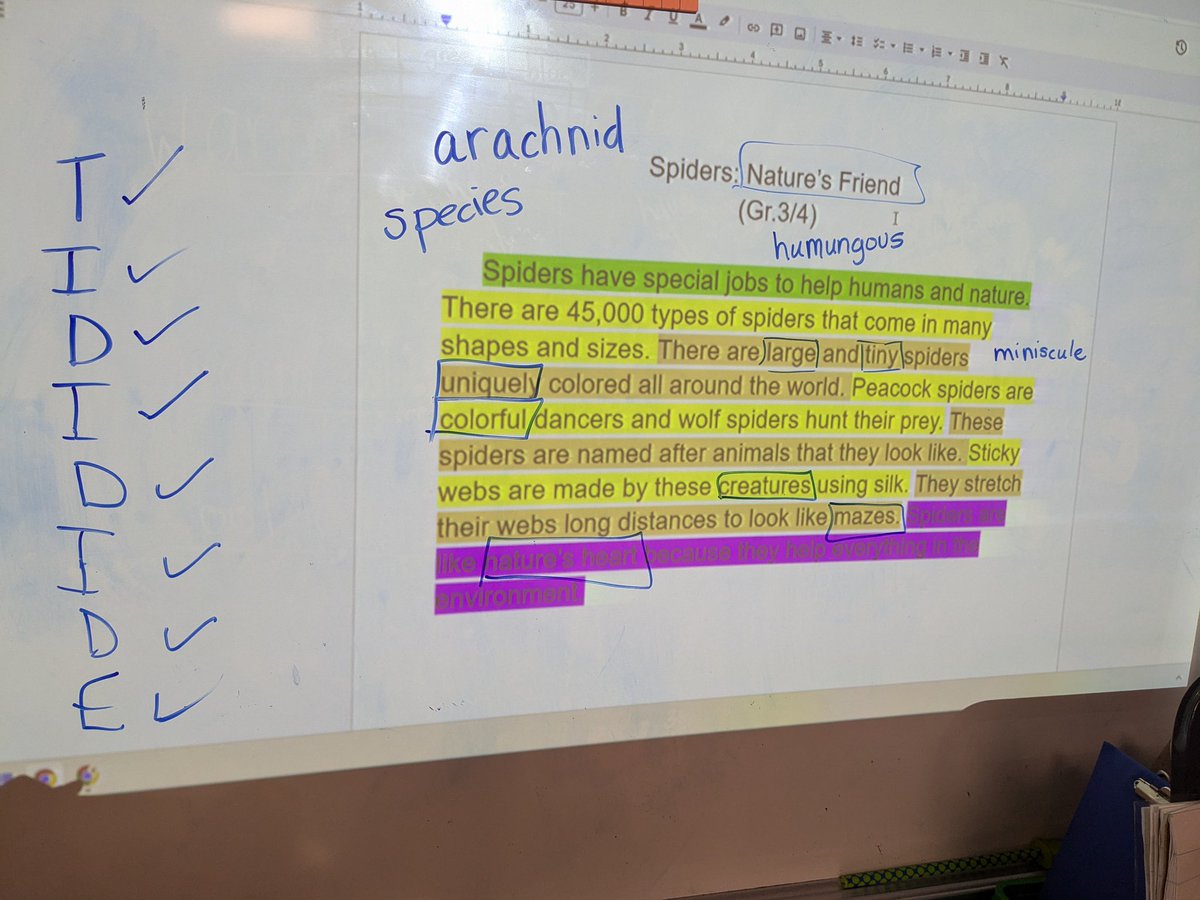 arachnid
species
Spiders: Nature's Friend
(Gr.3/4)
humungous
Spiders have special jobs to help humans and nature.
There are 45,000 types of spiders that come in many
shapes and sizes. There are large and tiny spiders
miniscule
uniquely colored all around the world. Peacock spiders are
colorful dancers and wolf spiders hunt their prey. These
spiders are named after animals that they look like. Sticky
webs are made by these creatures using silk. They stretch
their webs long distances to look like mazes. Spiders are
like nature's heart because they help everything in the
environment.
T ✓
I ✓
D ✓
I ✓
D ✓
I ✓
D ✓
E ✓